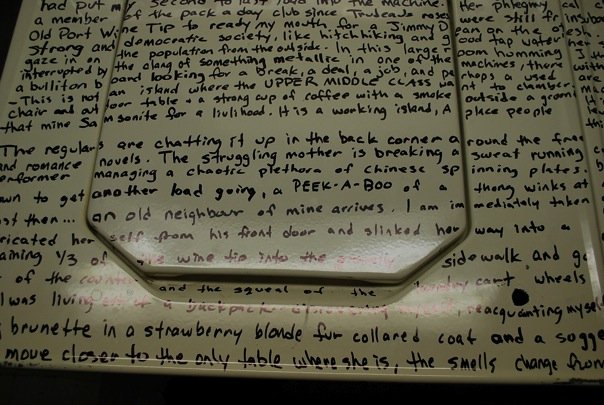 had put my second to last load into the machine. Her phlegmy
a member of the pack a day club since Trudeau's roses were still fr
Old Port Wine Tip to ready my mouth for Jimmy D ean on the flesh
strong and democratic society, like hitchhiking and g ood tap water
gaze in on the population from the outside. In this large room humming
interrupted by the clang of something metallic in one of the machines, there
a bullit on b oard looking for a break, a deal, a job, and pe rhaps a used
- This is not an island where the UPPER MIDDLE CLASS wa nt to chamber
chair and out door table + a strong cup of coffee with a smoke outside a
that mine Sa msonite for a livlihood. It is a working island, A place people
The regulars are chatting it up in the back corner a round the
and romance novels. The struggling mother is breaking a sweat running
erformer managing a chaotic plethora of chinese sp inning plates.
wn to get another load going, a PEEK-A-BOO of a thong winks at
ust then... an old neighbour of mine arrives. I am im mediately taken
ricated her self from his front door and slinked her way into a
aining 1/3 of the wine tip into the sidewalk, and go
of the counter and the squeal of the laundry cart wheels
I was living out of a backpack reacquanting myself
brunette in a strawberry blonde fur collared coat and a sugge
move closer to the only table where she is, the smells change from